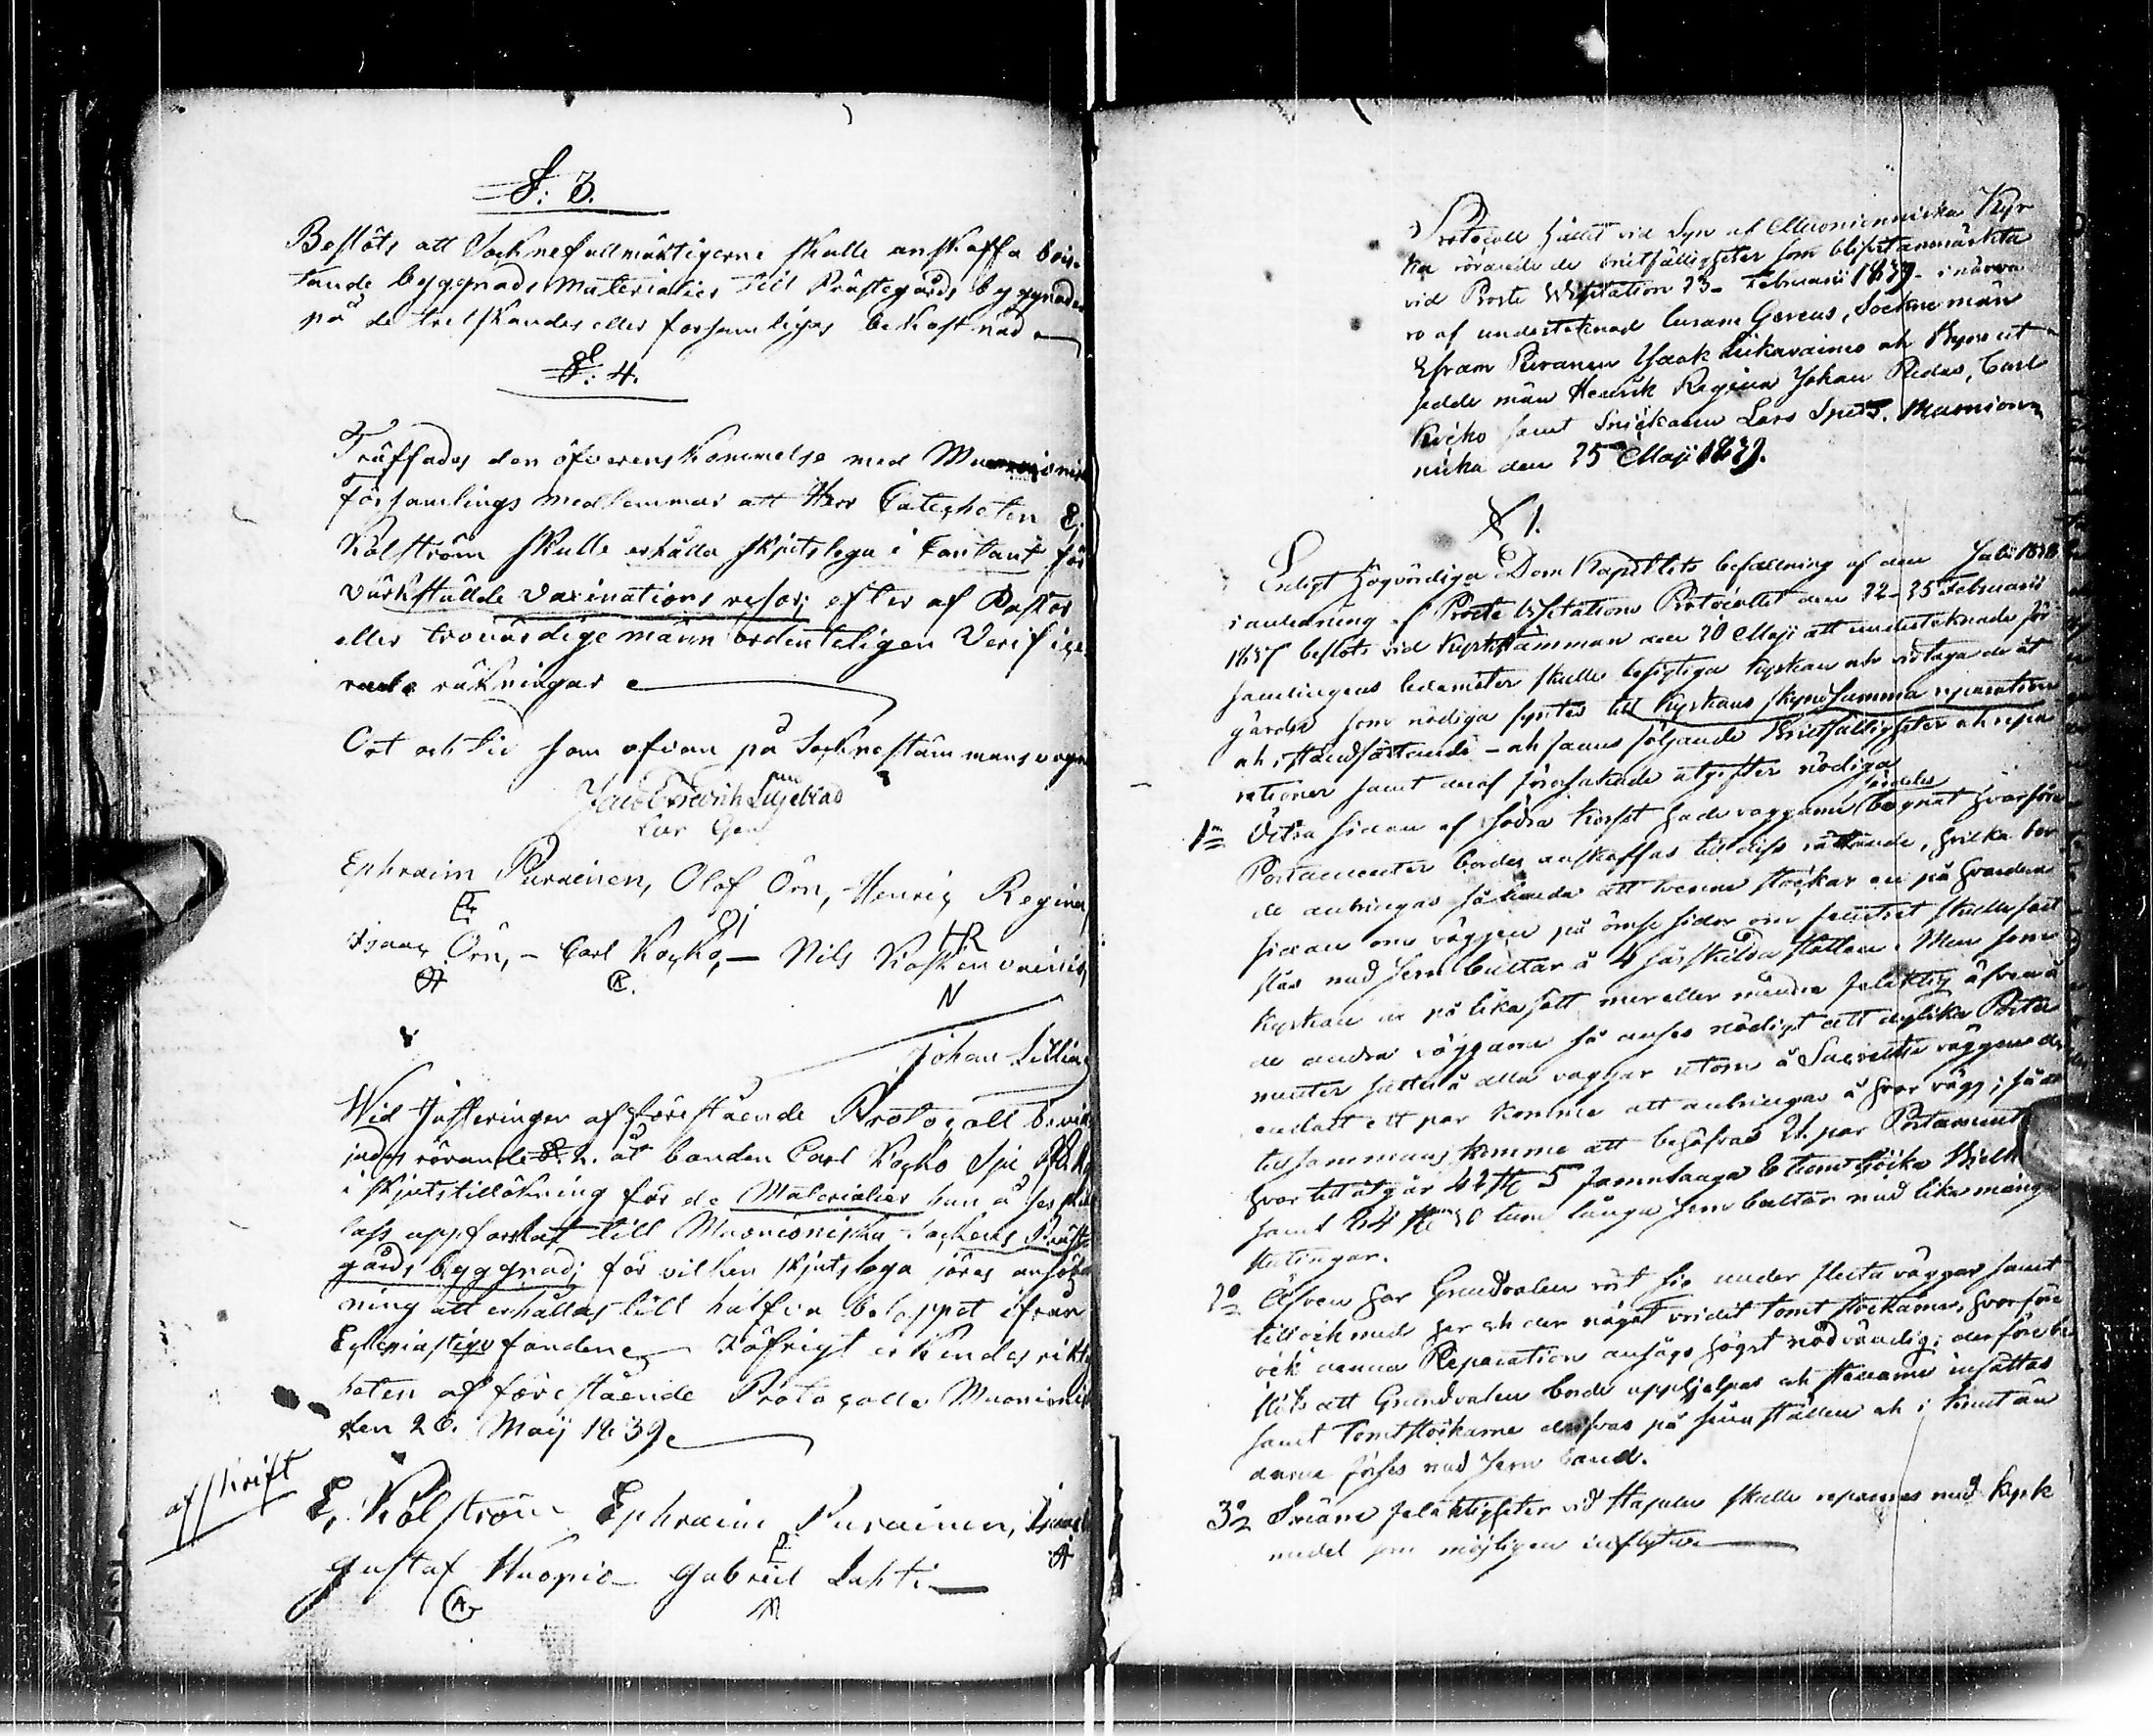 §: 3.
Beslöts att Socknefullmäktigerne skulle anskaffa bris-
tande byggnads Materialier till Prästegårds byggnaden
på de tredskandes eller forsumligas bekostnad
§: 4.
Träffades den öfverenskommelse med Muonioniska
Församlings medlemmar att Herr Catecheten E,
Kolström skulle erhålla skjutslega i Contant för
värkstälde vaxinations resor; efter af Pastor
eller trovärdige männ ordenteligen Verifice-
rade räkningar
Ort och tid som ofvan på Sockne stämmans vegnar
Jacob Fredrich Liljeblad
Ephraim Puranen, Olof Örn, Henric Regina
Isaac Örn, - Carl Kocko, - Nils Koskenvainio,
N
Johan
Wid Justeringen af förestående Protocoll bevil-
jades rörande §: 2. åt bonden Carl Kocko
i skjutstillökning för de Materialier han å
lass uppforslat till Muonioniska Sockens Präste-
gårds byggnad; för vilken skjutslega göres anhål-
ning att erhållas till hälften beloppet ifrån
Eclesiastique fonden I öfrigt erkändes rikti
heten af förestående Protocolle Muonionisk
den 26. Maij 1839.
afskrift
E, Kolström Ephraim Purainen, Isaac
Gustaf Kuopio - Gabriel Lahti
Protocoll hållit vid Syn af Muonioniska Kyr
ka rörande de bristfälligheter som blifvit anmärkta
vid Proste Visitation 23 Februarii 1837 i närva
ro af undertecknad Sockne män
Efraim Puranen Isaak Liikavainio och Byns ut
sedde män Henrik Regina Johan Carl
Kocko samt Snickaren Lars Muonion
niska den 25 Maji 1839.
§ 1.
Enligt Högvördiga Dom Kapitlets befallning af den Julii 1838
i anledning af Proste Visitations Protocollet den 22-25 Februarii
1837 beslöts vid Kyrkstämman den 20 Maji att undertecknade för
samlingens ledamöter skulle besigtiga kyrkan och vidtaga de åt
gärder som nödiga syntes till Kyrkans skyndsamma reparation
och iståndsättande - och fanns följande bristfälligheter och repa
rationer samt deraf förorsakade utgifter nödiga
1o Östra sidan af södra korset hade väggarne särdeles bognat hvarföre
Portamenter borde anskaffas till dess rättande, hvilka bor
de anbringas sålunda att tvenne stockar en på hvardera
sidan om väggen på ömse sidor om fenstret skulle fäst
slås med Jern bultar å 4 särskilda ställen. Men som
kyrkan är på lika sätt mer eller mindre felaktig äfven å
de andra väggarne så anses nödigt att dylika Porta
menter sättes å alla väggar utom å Sacristie väggen der
endast ett par komme att anbringas å hvar vägg; så att
tillsammans komme att behöfvas 21 par Portament
hvartill åtgår 42 st 5 famnlånga 8 tum tjocka
samt 84 st 30 tum långa Jern bultar med lika många
2o Äfven har Grundvalen rört sig under flesta väggar samt
tillochmed här och der något vridit tomt stockarne, hvarföre
ock denna Reparation ansågs högst nödvändig; derföre be
slöts att Grundvalen borde upphjelpas och stenarne insättas
samt Tomtstockarne drifvas på sina ställen och i knutän
darne förses med Jern band.
3o Smärre felaktigheter vid stapelen skulle repareras med kyrk
medel som möjligen inflyter